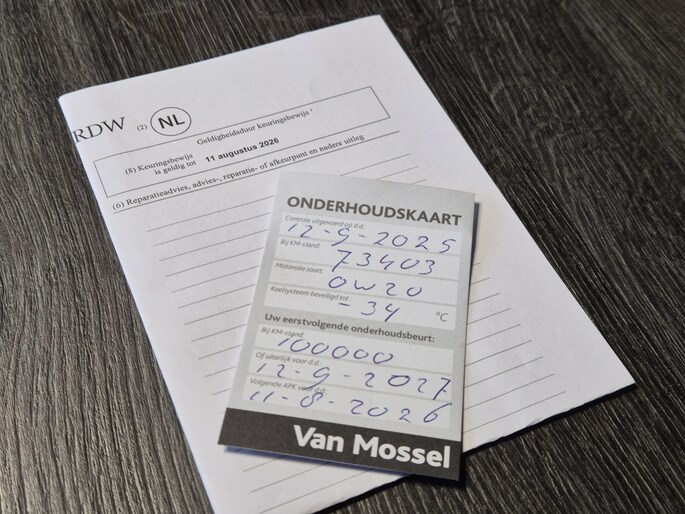 RDW (2) NL
Geldigheidsduur keuringsbewijs ¹
(8) Keuringsbewijs is geldig tot 11 augustus 2026
(6) Reparatieadvies, advies-, reparatie- of afkeurpunt en nadere uitleg
ONDERHOUDSKAART
Controle uitgevoerd op d.d.:
12-9-2025
Bij KM-stand:
73403
Motorolie soort:
0W20
Koelsysteem beveiligd tot:
-34 °C
Uw eerstvolgende onderhoudsbeurt:
Bij KM-stand:
100000
Of uiterlijk voor d.d.:
12-9-2027
Volgende APK voor d.d.:
11-8-2026
Van Mossel